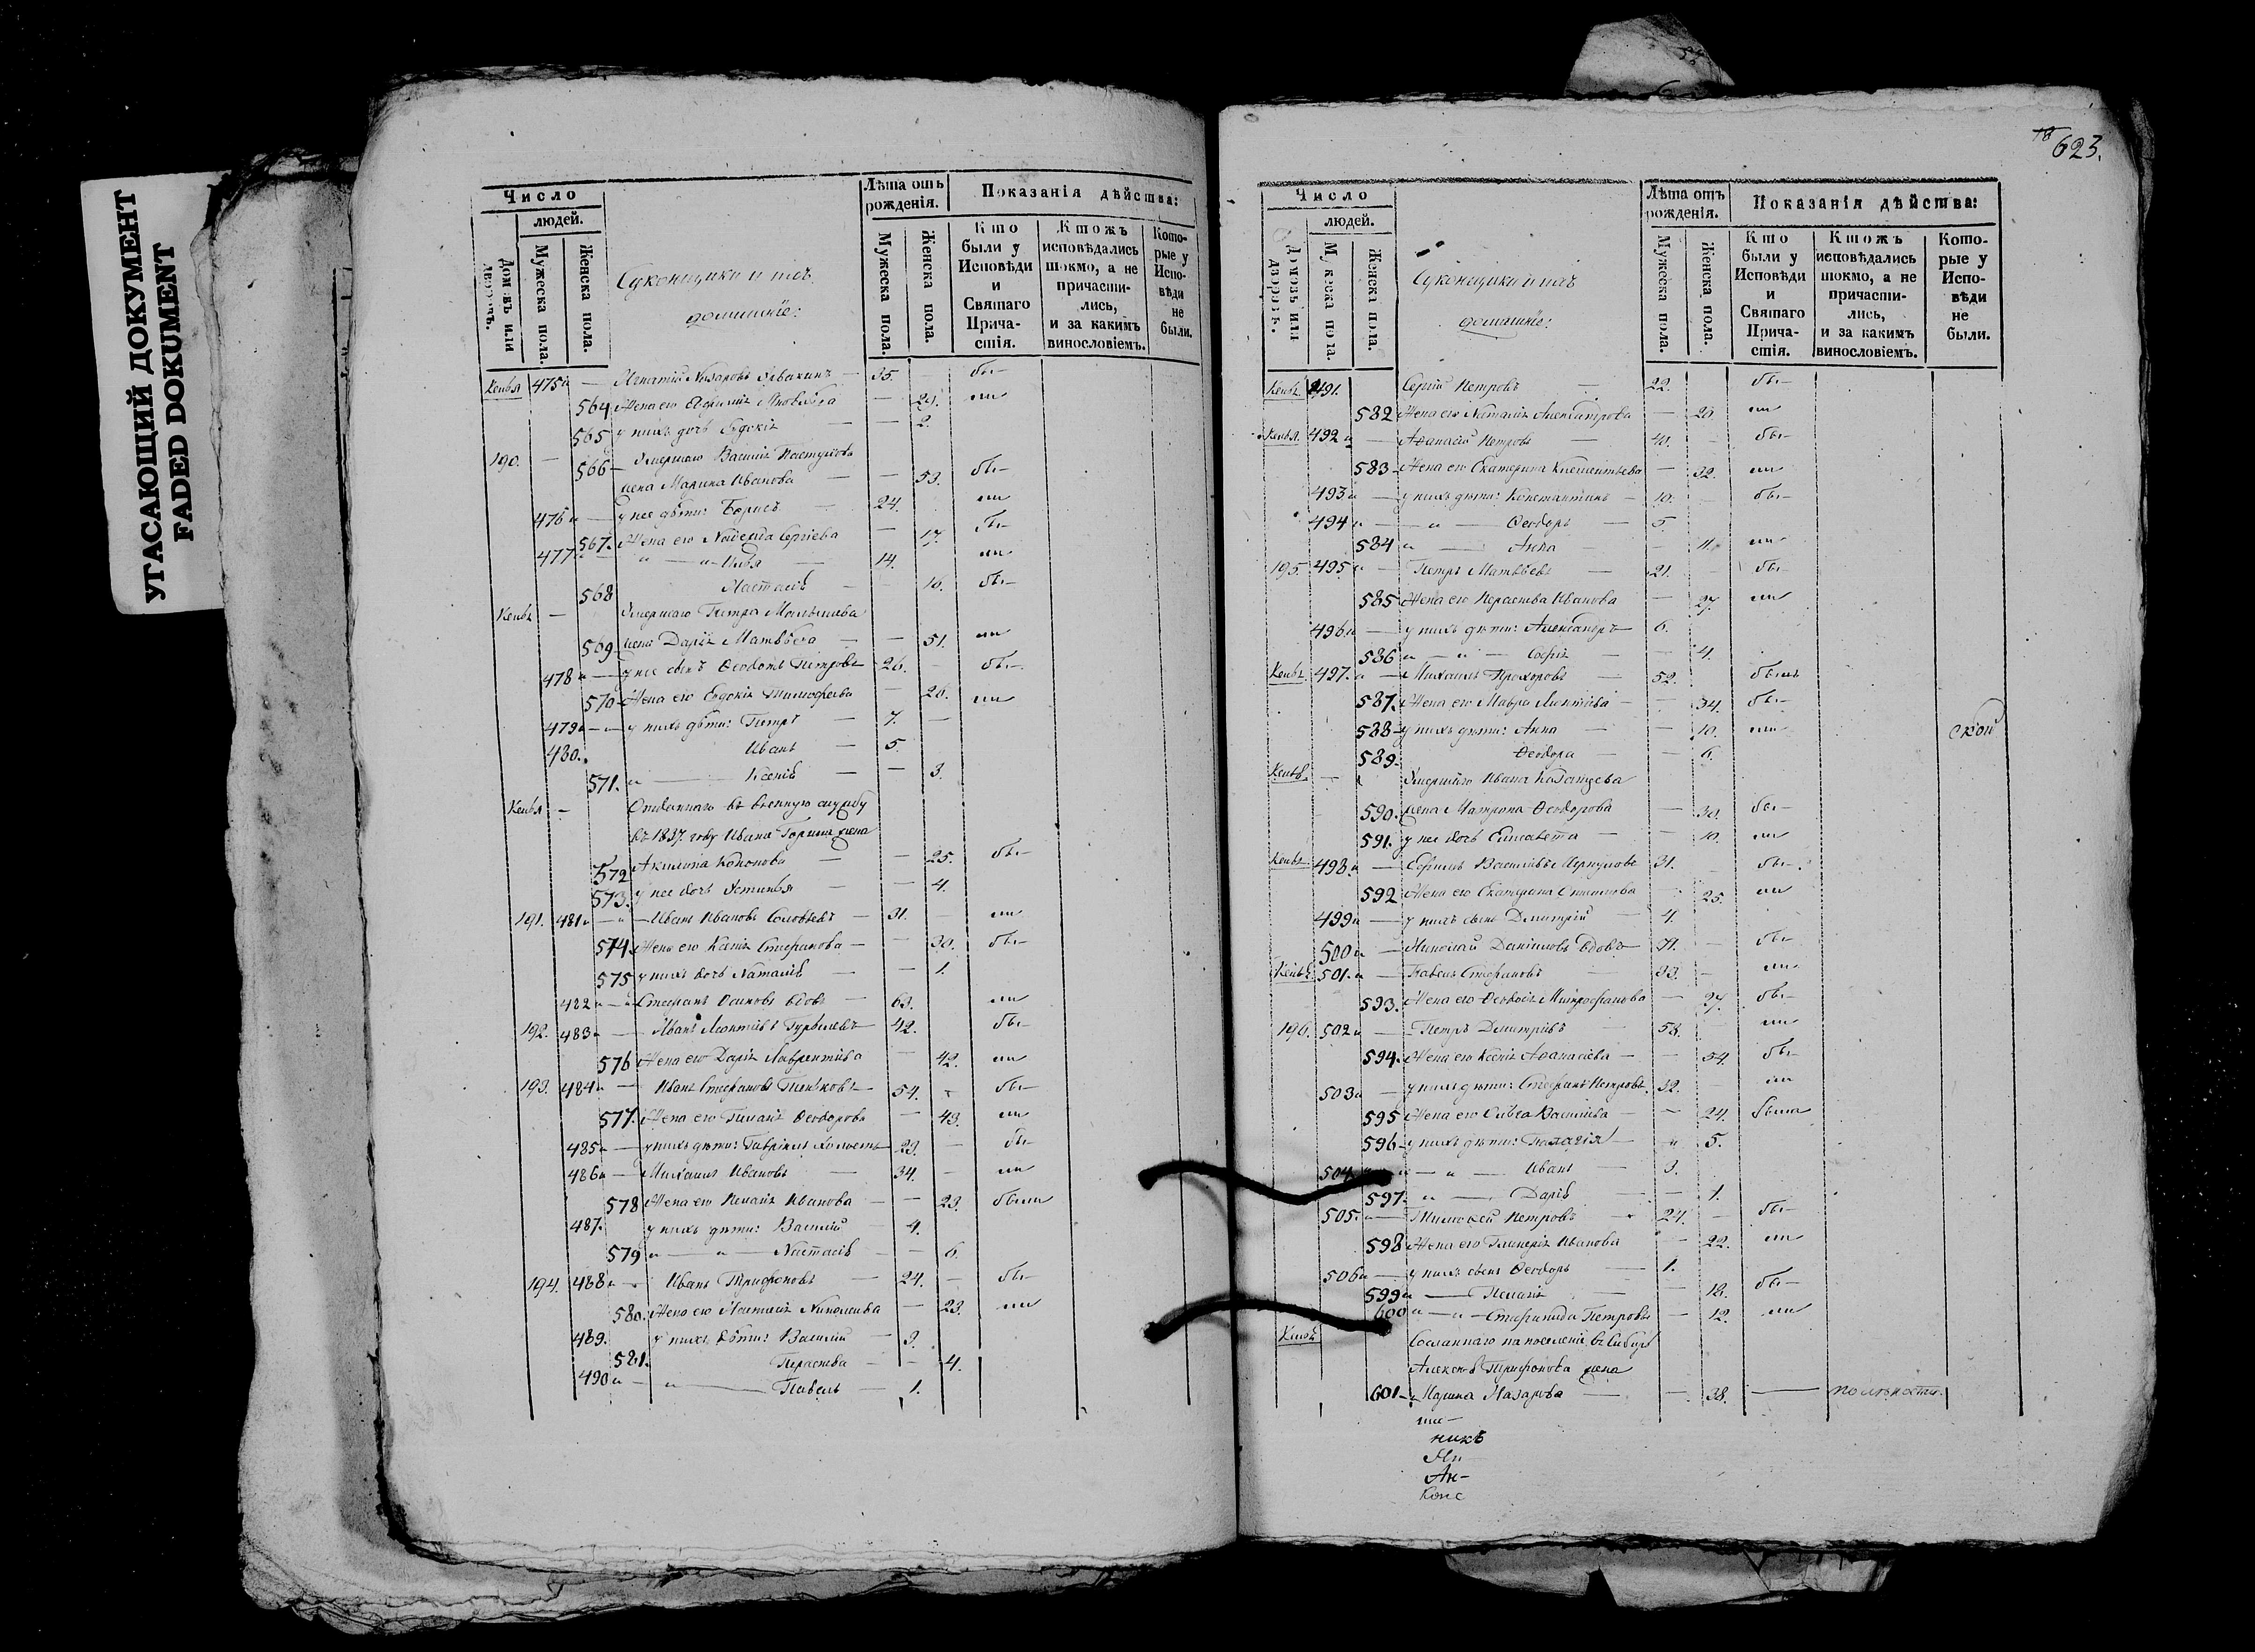 УГАСАЮЩИЙ ДОКУМЕНТ
FADED DOKUMENT
Число
людей.
Домовъ или дворовъ.
Мужеска пола.
Женска пола.
Суконщики и ихъ
домашніе:
Лѣта отъ рожденія.
Мужеска пола.
Женска пола.
Показанія дѣйства:
Кто были у Исповѣди и Святаго Прича-стія.
Ктожъ исповѣдались токмо, а не причасти-лись, и за какимъ винословіемъ.
Кото-рые у Испо-вѣди не были.
475 Игнатій Назаровъ 35. бы-
564 Жена его 29. ли
565 у нихъ дочь Евдокія 2.
190. 566 Умершаго Василія Пастухова
жена Марина Иванова 53. бы-
476 у нее дѣти: Борисъ 24. ли
567. Жена его Надежда Сергіева 17. бы-
477 Илья 14. ли
568 Настасія 10. бы-
Умершаго Петра
569 жена Дарія Матвѣева 51. ли
478 у нее сынъ Ѳедотъ Петровъ 26. бы-
570 Жена его Евдокія Тимофеева 26. ли
479 у нихъ дѣти: Петръ 7.
480. Иванъ 5.
571. Ксенія 3.
Отданнаго въ военную службу
въ 1837. году Ивана Горина жена
572 Акилина 25. бы-
573. у нее дочь Устинья 4.
191. 481 Иванъ Ивановъ Соловьевъ 31. ли
574 Жена его Ксенія Стефанова 30. бы-
575 у нихъ дочь Наталія 1.
482 Стефанъ Осиповъ вдовъ 63. ли
192. 483 Иванъ Леонтіевъ Гурьлевъ 42. бы-
576 Жена его Дарія Лаврентіева 42. ли
193. 484 Иванъ Стефановъ Пеньковъ 54. бы-
577. Жена его Пелагія Ѳеодорова 43. ли
485 у нихъ дѣти: Гавріилъ холостъ 23. бы-
486 Михаилъ Ивановъ 34. ли
578 Жена его Пелагія Иванова 23. были
487. у нихъ дѣти: Василій 4.
579 Настасія 6.
194. 488 Иванъ Трифоновъ 24. бы-
580. Жена его Настасія Николаева 23. ли
489. у нихъ дѣти: Василій 3.
581. Парасковья 4.
490 Павелъ 1.
623.
Число
людей.
Домовъ или дворовъ.
Мужеска пола.
Женска пола.
Суконщики и ихъ
домашніе:
Лѣта отъ рожденія.
Мужеска пола.
Женска пола.
Показанія дѣйства:
Кто были у Исповѣди и Святаго Прича-стія.
Ктожъ исповѣдались токмо, а не причасти-лись, и за какимъ винословіемъ.
Кото-рые у Испо-вѣди не были.
491. Сергій Петровъ 22. бы-
582 Жена его Наталія Александрова 20. ли
492 Аѳанасій Петровъ 41. бы-
583 Жена его Екатерина Клементьева 32. ли
493 у нихъ дѣти: Константинъ 10. бы-
494 Ѳеодоръ 5
584 Анна 11. ли
195. 495 Петръ Матвѣевъ 21. бы-
585 Жена его Параскева Иванова 27. ли
496 у нихъ дѣти: Александръ 6.
586 Софія 4.
497. Михаилъ Прохоровъ 52. былъ
587. Жена его Мавра Леонтіева 34. бы-
588 у нихъ дѣти: Анна 10. ли
ской
589. Ѳеодора 6.
Умершаго Ивана Казанцева
590. жена Матрона Ѳеодорова 30. бы-
591. у нее дочь Елисавета 10. ли
498. Ефимъ Васильевъ 31. бы-
592 Жена его Екатерина 25. ли
499 у нихъ сынъ Дмитрій 4.
500 Николай Даніиловъ вдовъ 71. бы-
501. Павелъ Стефановъ 33. ли
593. Жена его Ѳеодосія Митрофанова 37. бы-
196. 502 Петръ Дмитріевъ 58. ли
594. Жена его Ксенія Аѳанасіева 54. бы-
503 у нихъ дѣти: Стефанъ Петровъ 32. ли
595 Жена его Васильева 24. была
596 у нихъ дѣти: Пелагія 5.
504 Иванъ 3.
597. Дарія 1.
505. Тимоѳей Петровъ 24. бы-
598 Жена его Гликерія Иванова 22. ли
506 у нихъ сынъ Ѳеодоръ 1.
599 Пелагія 18. бы-
600 Стефанида Петровы 12. ли
Сосланнаго на поселеніе въ Сибирь
Алексѣя Трифонова жена
601 Марина Назарова 38.
никъ
Ан-
Конс